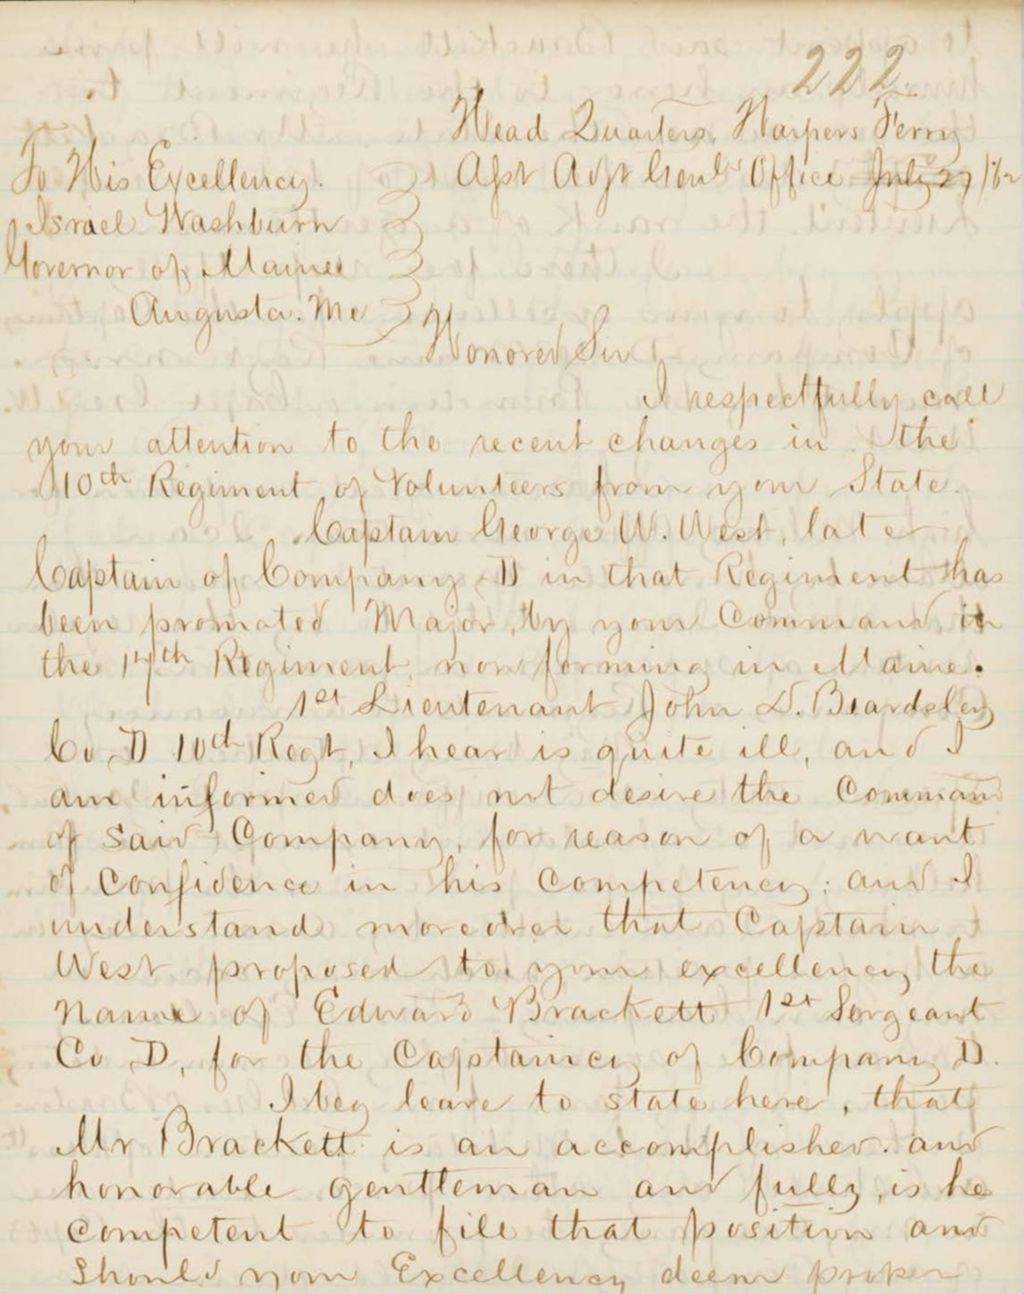 222
Head Quarters, Harpers Ferry
Asst Adjt Genls Office July 27 /62
To His Excellency.
Israel Washburn
Governor of Maine
Augusta. Me
Honored Sir
I respectfully call
your attention to the recent changes in the
10th Regiment of Volunteers from your State.
Captain George W. West, late
Captain of Company D in that Regiment has
been promoted Major, by your Command, in
the 17th Regiment, now forming in Maine.
1st Lieutenant John D. Beardsley
Co D 10th Regt, I hear is quite ill, and I
am informed does not desire the Command
of said Company, for reason of a want
of Confidence in his Competency; and I
understand moreover that Captain
West proposed to your excellency the
Name of Edward Brackett 1st Sergeant
Co D, for the Captaincy of Company D.
I beg leave to state here, that
Mr Brackett is an accomplished and
honorable gentleman and fully is he
competent to fill that position and
Should your Excellency deem proper